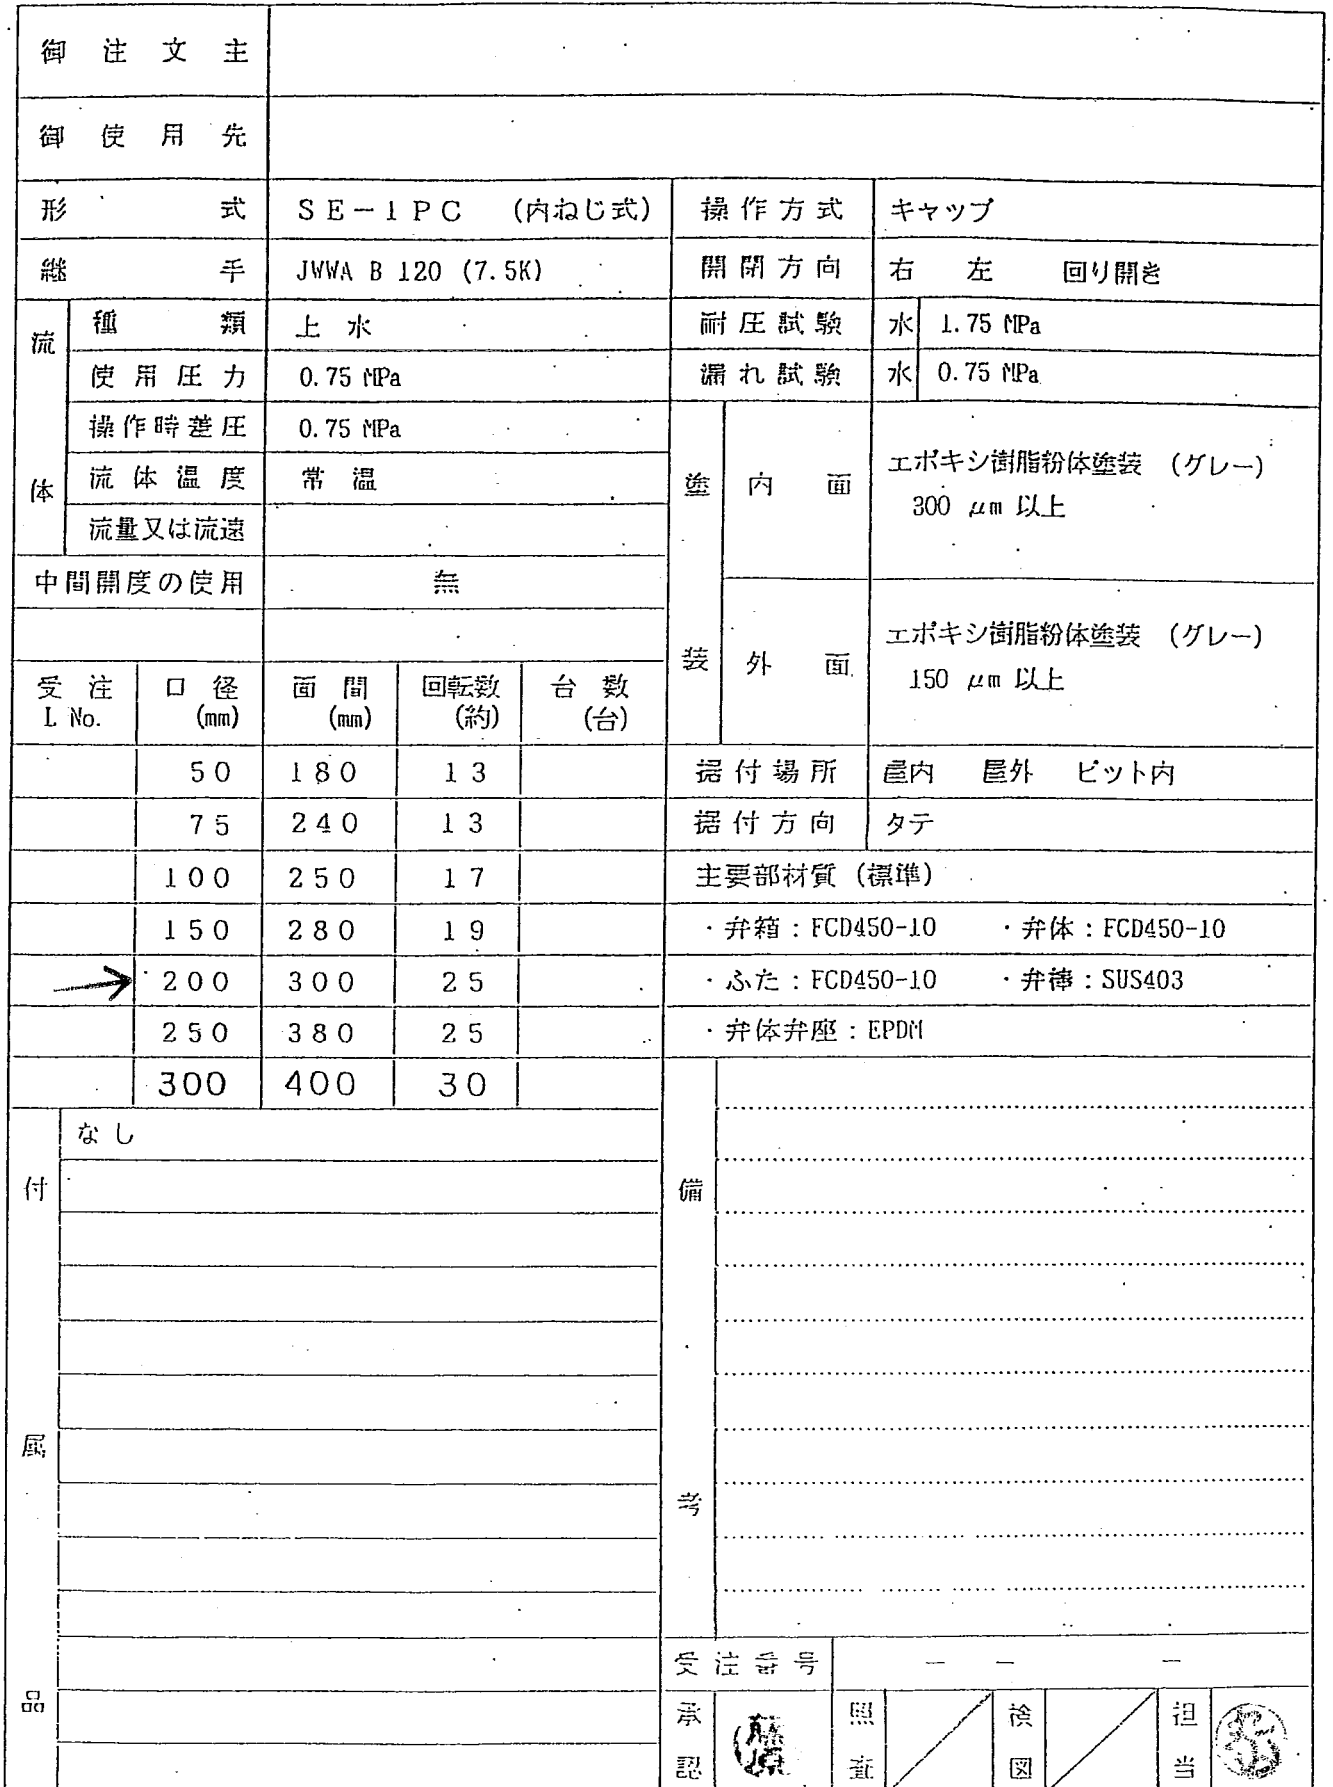 御注文主
御使用先
形式 SE-1PC (内ねじ式) 操作方式 キャップ
継手 JWWA B 120 (7.5K) 開閉方向 右 左 回り開き
流体 種類 上水 耐圧試験 水 1.75 MPa
使用圧力 0.75 MPa 漏れ試験 水 0.75 MPa
操作時差圧 0.75 MPa
流体温度 常温
流量又は流速
中間開度の使用 無
塗装 内面 エポキシ樹脂粉体塗装 (グレー)
300 μm 以上
外面 エポキシ樹脂粉体塗装 (グレー)
150 μm 以上
受注 口径 面間 回転数 台数
L No. (mm) (mm) (約) (台)
50 180 13
75 240 13
100 250 17
150 280 19
→ 200 300 25
250 380 25
300 400 30
据付場所 屋内 屋外 ピット内
据付方向 タテ
主要部材質 (標準)
・弁箱:FCD450-10 ・弁体:FCD450-10
・ふた:FCD450-10 ・弁棒:SUS403
・弁体弁座:EPDM
付属品 なし
備考
受注番号 ― ― ―
承認 藤原 照査 検図 担当